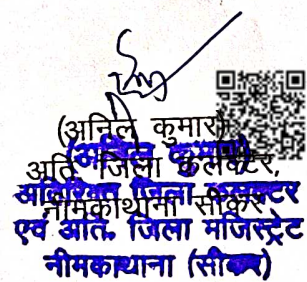 (अनिल कुमार)
अति. जिला कलेक्टर,
नीमकाथाना सीकर
(अनिल कुमार)
अतिरिक्त जिला कलक्टर
एवं अति. जिला मजिस्ट्रेट
नीमकाथाना (सीकर)